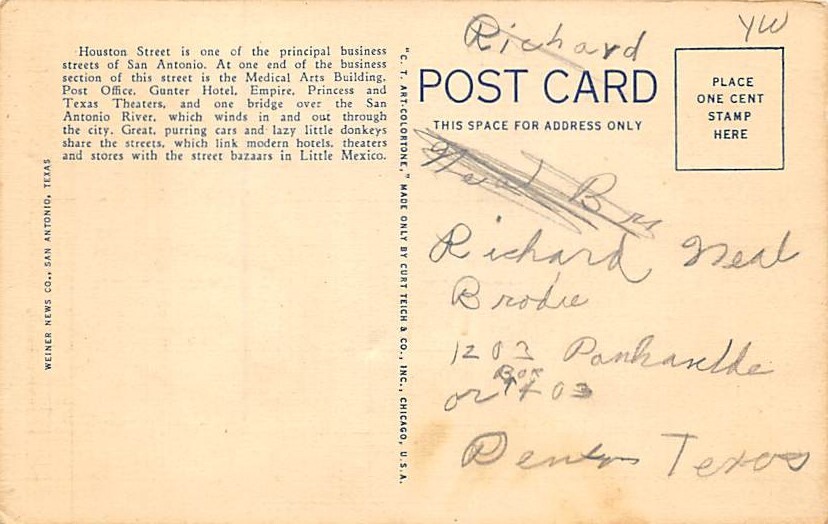 Houston Street is one of the principal business
streets of San Antonio. At one end of the business
section of this street is the Medical Arts Building,
Post Office, Gunter Hotel, Empire, Princess and
Texas Theaters, and one bridge over the San
Antonio River, which winds in and out through
the city. Great, purring cars and lazy little donkeys
share the streets, which link modern hotels, theaters
and stores with the street bazaars in Little Mexico.
WEINER NEWS CO., SAN ANTONIO, TEXAS
"C. T. ART-COLORTONE," MADE ONLY BY CURT TEICH & CO., INC., CHICAGO, U.S.A.
YW
Richard
POST CARD
THIS SPACE FOR ADDRESS ONLY
PLACE
ONE CENT
STAMP
HERE
Neal Br
Richard Neal
Brodie
1203 Panhandle
Box
or 403
Denton Texas